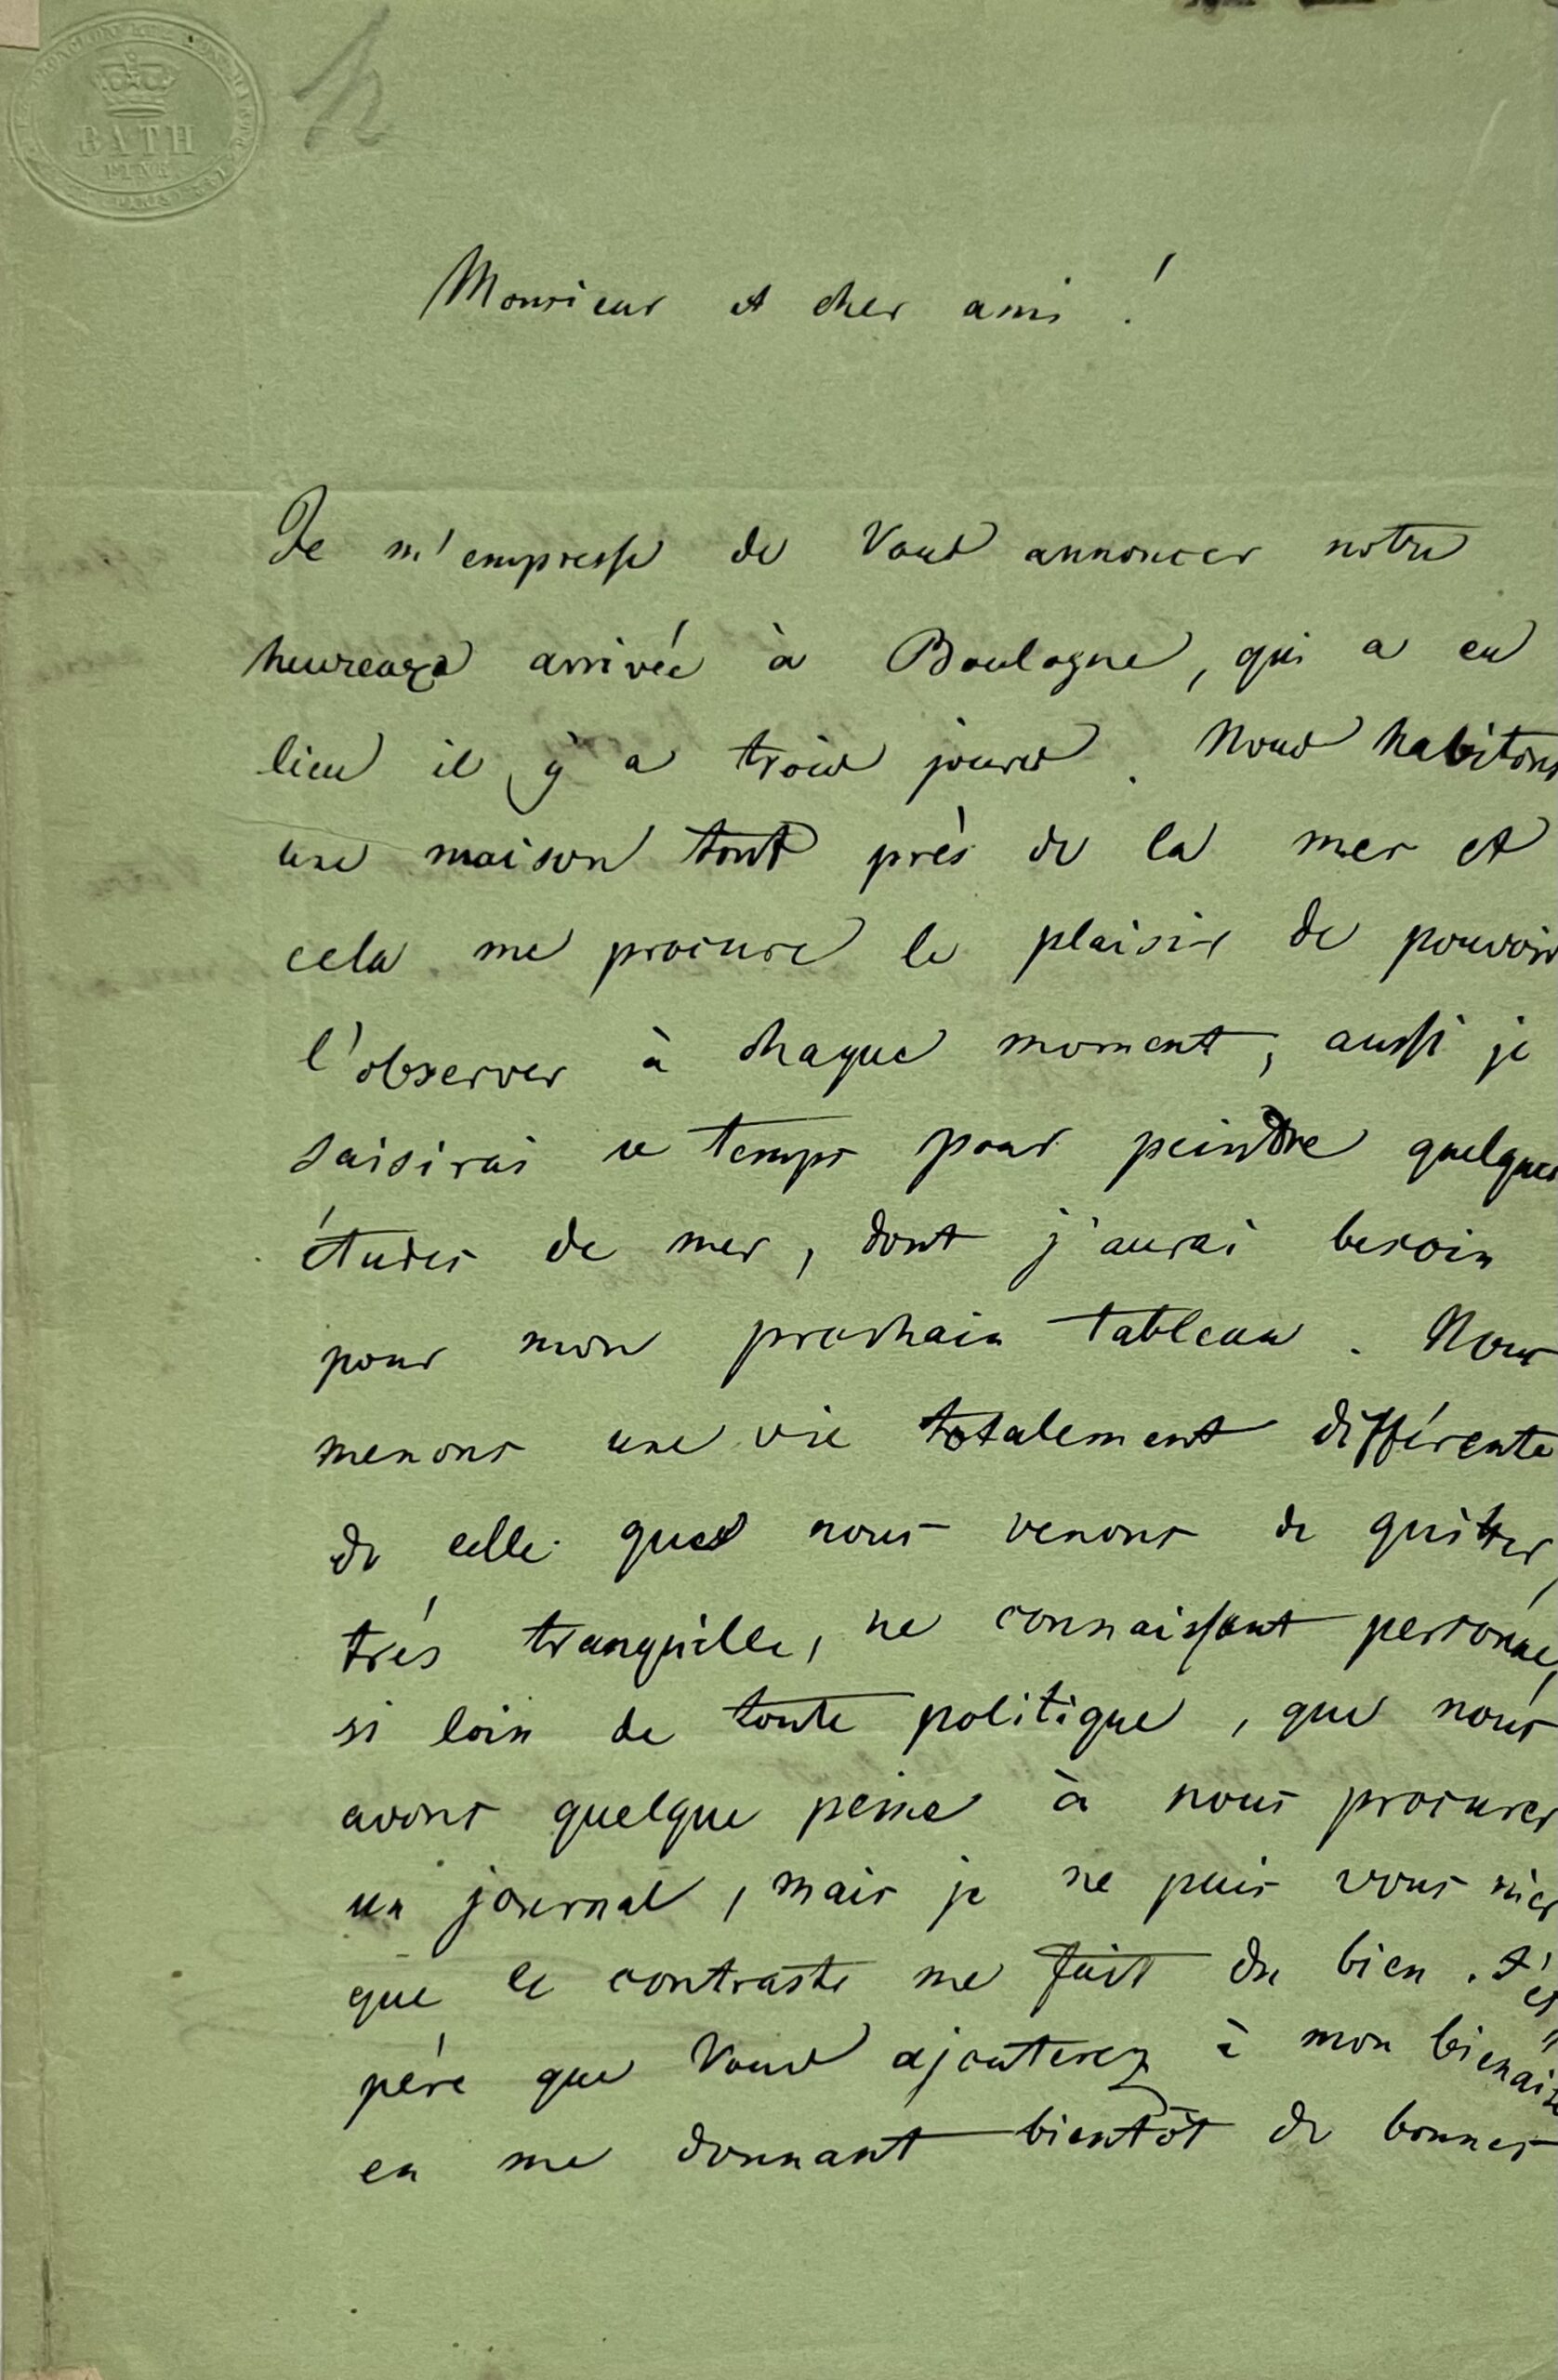 BATH
Monsieur et cher ami !
Je m'empresse de Vous annoncer notre
heureuse arrivée à Boulogne, qui a eu
lieu il y a trois jours. Nous habitons
une maison tout près de la mer et
cela me procure le plaisir de pouvoir
l'observer à chaque moment, aussi je
saisirai ce temps pour peindre quelques
études de mer, dont j'aurai besoin
pour mon prochain tableau. Nous
menons une vie totalement différente
de celle que nous venons de quitter,
très tranquille, ne connaissant personne,
si loin de toute politique, que nous
avons quelque peine à nous procurer
un journal, mais je ne puis vous nier
que le contraste me fait du bien. J'es
père que Vous ajouterez à mon bienaise
en me donnant bientôt de bonnes